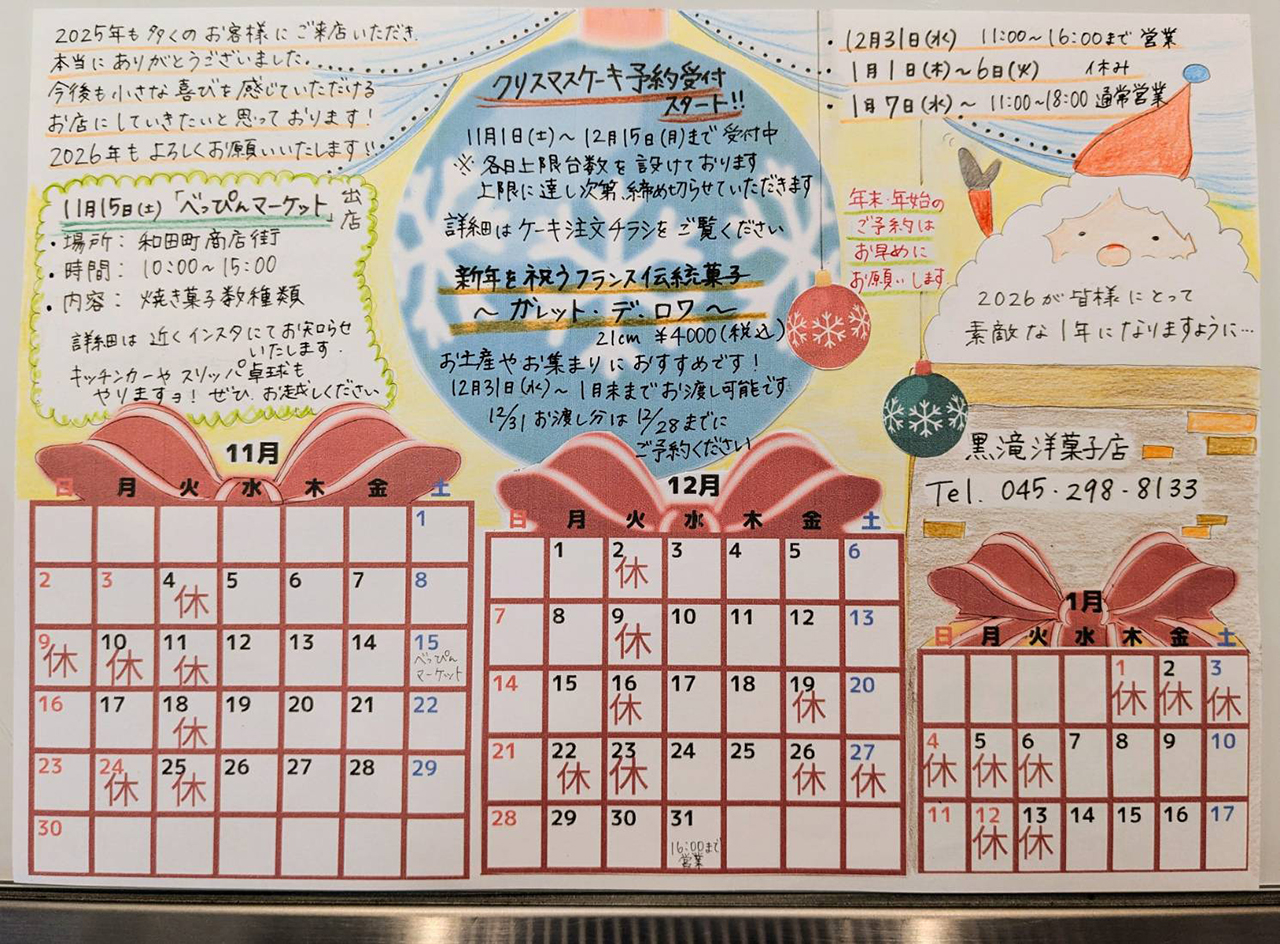 2025年も多くのお客様にご来店いただき
本当にありがとうございました。
今後も小さな喜びを感じていただける
お店にしていきたいと思っております!
2026年もよろしくお願いいたします!!
11月15日(土)「べっぴんマーケット」出店
・場所: 和田町商店街
・時間: 10:00~15:00
・内容: 焼き菓子数種類
詳細は近くインスタにてお知らせ
いたします.
キッチンカーや スリッパ卓球も
やりますョ! ぜひ、お越しください
クリスマスケーキ予約受付
スタート!!
11月1日(土)~12月15日(月)まで受付中
※各日上限台数を設けております
上限に達し次第、締め切らせていただきます
詳細はケーキ注文チラシをご覧ください
新年を祝うフランス伝統菓子
~ ガレット・デ・ロワ ~
21cm ¥4000(税込)
お土産やお集まりにおすすめです!
12月31日(水)~1月末までお渡し可能です
12/31お渡し分は12/28までに
ご予約ください
・12月31日(水) 11:00~16:00まで営業
・1月1日(木)~6日(火) 休み
・1月7日(水)~ 11:00~18:00 通常営業
年末・年始の
ご予約は
お早めに
お願いします
2026が皆様にとって
素敵な1年になりますように…
黒滝洋菓子店
Tel. 045-298-8133
11月
日 月 火 水 木 金 土
1
2 3 4休 5 6 7 8
9休 10休 11休 12 13 14 15べっぴんマーケット
16 17 18休 19 20 21 22
23 24休 25休 26 27 28 29
30
12月
日 月 火 水 木 金 土
1 2休 3 4 5 6
7 8 9休 10 11 12 13
14 15 16休 17 18 19休 20
21 22休 23休 24 25 26休 27休
28 29 30 31 16:00まで営業
1月
日 月 火 水 木 金 土
1休 2休 3休
4休 5休 6休 7 8 9 10
11 12休 13休 14 15 16 17